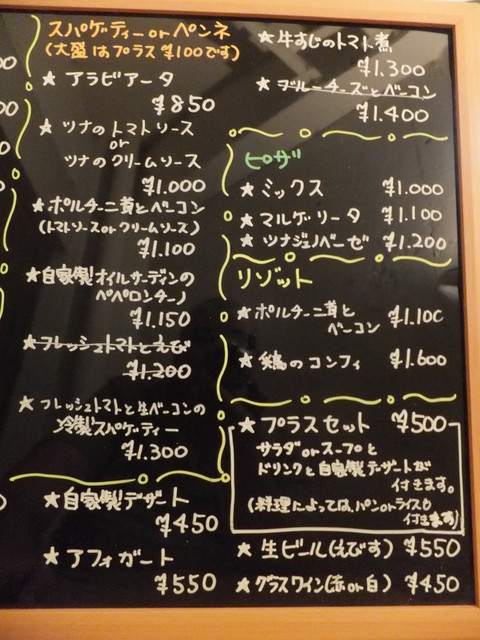 スパゲティーorペンネ
(大盛はプラス¥100です)
★アラビアータ
¥850
★ツナのトマトソース
or
ツナのクリームソース
¥1.000
★ポルチーニ茸とベーコン
(トマトソースorクリームソース)
¥1.100
★自家製オイルサーディンの
ペペロンチーノ
¥1.150
★フレッシュトマトとえび
¥1.200
★フレッシュトマトと生ベーコンの
冷製スパゲティー
¥1.300
★自家製デザート
¥450
★アフォガート
¥550
★牛すじのトマト煮
¥1.300
★ブルーチーズとベーコン
¥1.400
ピザ
★ミックス ¥1.000
★マルゲリータ ¥1.100
★ツナジェノベーゼ ¥1.200
リゾット
★ポルチーニ茸と
ベーコン ¥1.100
★鶏のコンフィ ¥1.600
★プラスセット ¥500
サラダorスープと
ドリンクと自家製デザートが
付きます。
(料理によっては、パンorライスも
付きます)
★生ビール(えびす) ¥550
★グラスワイン(赤or白) ¥450